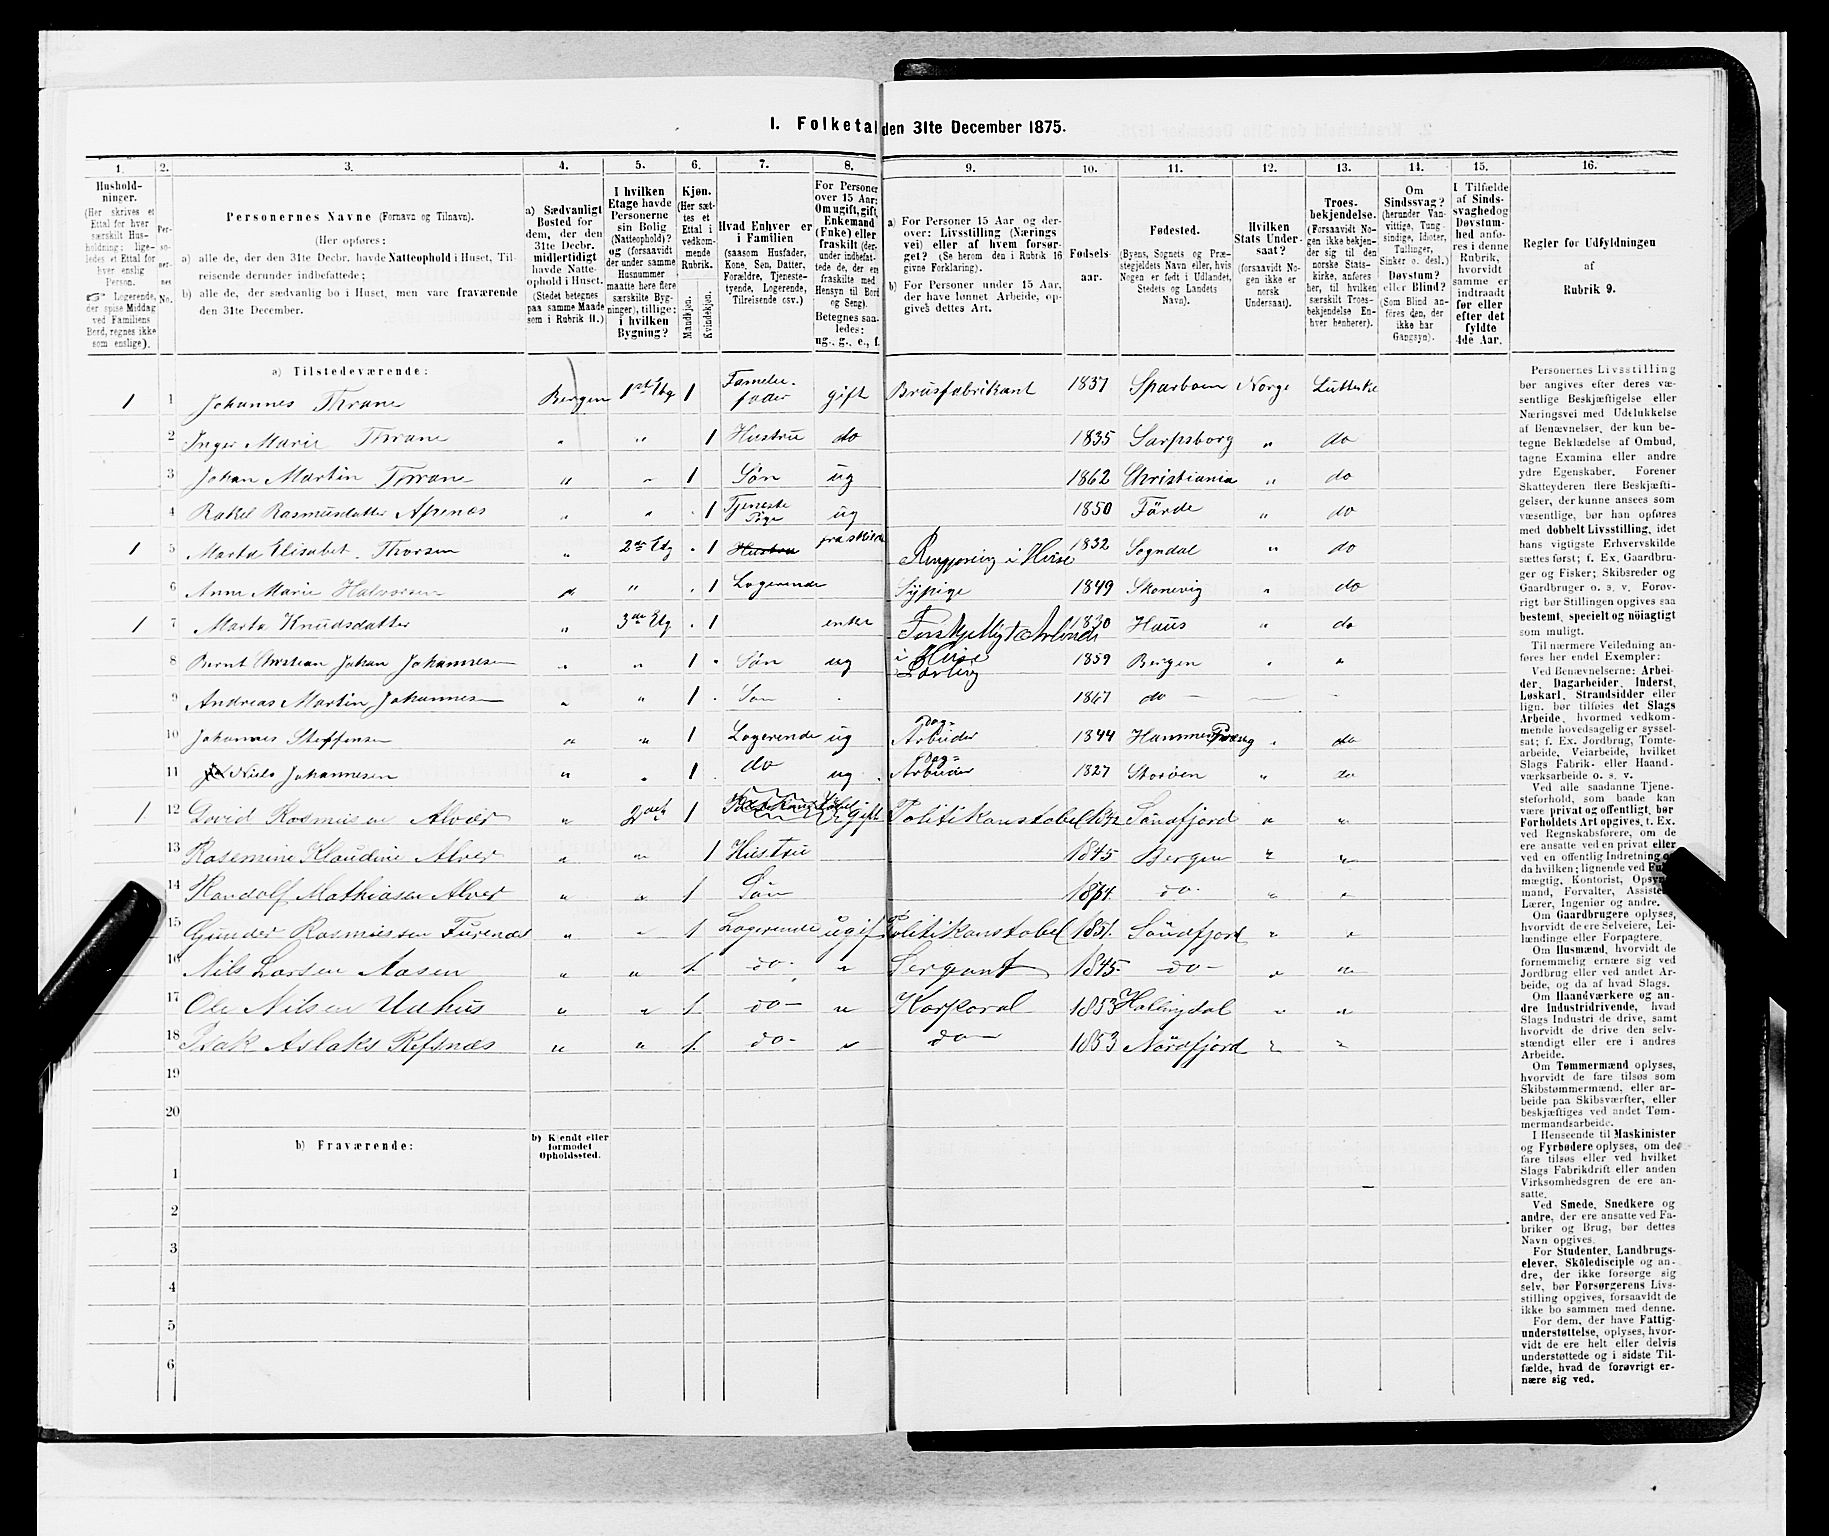 I. Folketal den 31te December 1875.
1. 2. 3. 4. 5. 6. 7. 8. 9. 10. 11. 12. 13. 14. 15. 16.
Hushold-
ninger.
(Her skrives et
Ettal for hver
særskilt Hus-
holdning; lige-
ledes et Ettal for
hver enslig
Person.
☞ Logerende,
der spise Middag
ved Familiens
Bord, regnes ikke
som enslige).
Per-
so-
ner-
nes
No.
Personernes Navne (Fornavn og Tilnavn).
(Her opføres:
a) alle de, der den 31te Decbr. havde Natteophold i Huset, Til-
reisende derunder indbefattede;
b) alle de, der sædvanlig bo i Huset, men vare fraværende
den 31te December.
a) Sædvanligt
Bosted for
dem, der den
31te Decbr.
midlertidigt
havde Natte-
ophold i Huset.
(Stedet betegnes
paa samme Maade
som i Rubrik 11.)
I hvilken
Etage havde
Personerne
sin Bolig
(Natteophold)?
og (forsaavidt
der under samme
Husnummer
maatte høre flere
særskilte Byg-
ninger), tillige:
i hvilken
Bygning?
Kjøn.
(Her sæt-
tes et
Ettal i
vedkom-
mende
Rubrik.
Mandkjøn.
Kvindekjøn.
Hvad Enhver er
i Familien
(saasom Husfader,
Kone, Søn, Datter,
Forældre, Tjeneste-
tyende, Logerende,
Tilreisende osv.)
For Personer
over 15 Aar:
Om ugift, gift,
Enkemand
(Enke) eller
fraskilt (der-
under indbefat-
tede de, der ere
fraskilte med
Hensyn til Bord
og Seng).
Betegnes saa-
ledes:
ug., g., e., f.
a) For Personer 15 Aar og der-
over: Livsstilling (Nærings
vei) eller af hvem forsør-
get? (Se herom den i Rubrik 16
givne Forklaring).
b) For Personer under 15 Aar,
der have lønnet Arbeide, op-
gives dettes Art.
Fødsels-
aar.
Fødested.
(Byens, Sognets og Præ-
stegjeldets Navn eller, hvis
Nogen er født i Udlandet,
Stedets og Landets
Navn).
Hvilken
Stats Under-
saat?
(forsaavidt No-
gen ikke er
norsk
Undersaat).
Troes-
bekjendelse.
(Forsaavidt No-
gen ikke bekjen-
der sig til den
norske Stats-
kirke, anføres
her, til hvilken
særskilt Troes-
bekjendelse En-
hver henhører).
Om
Sindssvag?
(herunder Van-
vittige, Tung-
sindige, Idioter,
Tullinger,
Sinker o. desl.)
Døvstum?
eller Blind?
(Som Blind an-
føres den, der
ikke har
Gangsyn).
I Tilfælde
af Sinds-
svaghed og
Døvstum-
hed anfø-
res i denne
Rubrik,
hvorvidt
samme er
indtraadt
før eller
efter det
fyldte
4de Aar.
Regler for Udfyldningen
af
Rubrik 9.
a) Tilstedeværende:
1 1 Johannes Thrane Bergen 1ste Etg 1 Familie-fader gift Brusfabrikant 1837 Sparboen Norge Lutterske
2 Inger Marie Thrane " " 1 Hustru do 1835 Sarpsborg " do
3 Johan Martin Thrane " " 1 Søn ug 1862 Christiania " do
4 Rakel Rasmusdatter " " 1 Tjeneste Pige ug 1850 Förde " do
1 5 Marta Elisabet Thorsen " 2de Etg 1 Hustru fraskildt Rengjøring i Huse 1832 Sogndal " do
6 Anne Marie Halvorsen " " 1 Logerende Sypige 1849 Skonevig " do
1 7 Marta Knudsdatter " 3de Etg 1 enke Forskjelligt Arbeide i Huse 1830 Haus " do
8 Bernt Christian Johan Johannesen " " 1 Søn ug Lærling 1859 Bergen " "
9 Andreas Martin Johannesen " " 1 Søn 1867 do
10 Johannes Steffensen " " 1 Logerende ug Dag-Arbeider 1844 Hammer " do
11 Niels Johannesen " " 1 do ug Dag-Arbeider 1827 Storöen " do
1 12 Rasmusen Alvær " 1 gift Politikonstabel Söndfjord " "
13 Rasemine Klaudine Alver " " 1 Hustru 1845 Bergen " "
14 Randolf Mathiasen Alver " " 1 Søn do " "
15 Gunder Rasmussen Furenæs " " 1 Logerende ugift Politikonstabel 1851 Söndfjord " "
16 Nils Larsen Aasen " " 1 do " Sergeant 1845 do " "
17 Ole Nilsen " " 1 do " Korporal 1853 Hallingdal " "
18 Isak Aslaks Refsnæs " " 1 do " do 1853 Nordfjord " "
19
20
b) Fraværende: b) Kjendt eller
formodet
Opholdssted.
1
2
3
4
5
6
Personernes Livsstilling
bør angives efter deres væ-
sentlige Beskjæftigelse eller
Næringsvei med Udelukkelse
af Benævnelser, der kun be-
tegne Beklædelse af Ombud,
tagne Examina eller andre
ydre Egenskaber. Forener
Skatteyderen flere Beskjæfti-
gelser, der kunne ansees som
væsentlige, bør han opføres
med dobbelt Livsstilling, idet
hans vigtigste Erhvervskilde
sættes først; f. Ex. Gaardbru-
ger og Fisker; Skibsreder og
Gaardbruger o. s. v. Forøv-
rigt bør Stillingen opgives saa
bestemt, specielt og nöiagtigt
som muligt.
Til nærmere Veiledning an-
føres her endel Exempler:
Ved Benævnelserne: Arbei-
der, Dagarbeider, Inderst,
Løskarl, Strandsidder eller
lign. bør tilføies det Slags
Arbeide, hvormed vedkom-
mende hovedsagelig er syssel-
sat; f. Ex. Jordbrug, Tomte-
arbeide, Veiarbeide, hvilket
Slags Fabrik- eller Haand-
værksarbeide o. s. v.
Ved alle saadanne Tjene-
steforhold, som baade kan
være privat og offentligt, bør
Forholdets Art opgives, t. Ex.
ved Regnskabsførere, om de
ere ansatte ved en privat eller
ved en offentlig Indretning og
da hvilken; lignende ved Fuld-
mægtig, Kontorist, Opsyns-
mand, Forvalter, Assistent,
Lærer, Ingeniør og andre.
Om Gaardbrugere oplyses,
hvorvidt de ere Selveiere, Lei-
lændinge eller Forpagtere.
Om Husmænd, hvorvidt de
fornemmelig ernære sig ved
Jordbrug eller ved andet Ar-
beide, og da af hvad Slags.
Om Haandværkere og an-
dre Industridrivende, hvad
Slags Industri de drive, samt
hvorvidt de drive den selv-
stændigt eller ere i andres
Arbeide.
Om Tømmermænd oplyses,
hvorvidt de fare tilsøs som
Skibstømmermænd, eller ar-
beide paa Skibsværfter, eller
beskjæftiges ved andet Tøm-
mermandsarbeide.
I Henseende til Maskinister
og Fyrbødere oplyses, om de
fare tilsøs eller ved hvilket
Slags Fabrikdrift eller anden
Virksomhedsgren de ere an-
satte.
Ved Smede, Snedkere og
andre, der ere ansatte ved Fa-
briker og Brug, bør dettes
Navn opgives.
For Studenter, Landbrugs-
elever, Skoledisciple og an-
dre, der ikke forsørge sig
selv, bør Forsørgerens Livs-
stilling opgives, forsaavidt de
ikke bo sammen med denne.
For dem, der have Fattig-
understøttelse, oplyses, hvor-
vidt de ere helt eller delvis
understøttede og i sidste Til-
fælde, hvad de forøvrigt er-
nære sig ved.